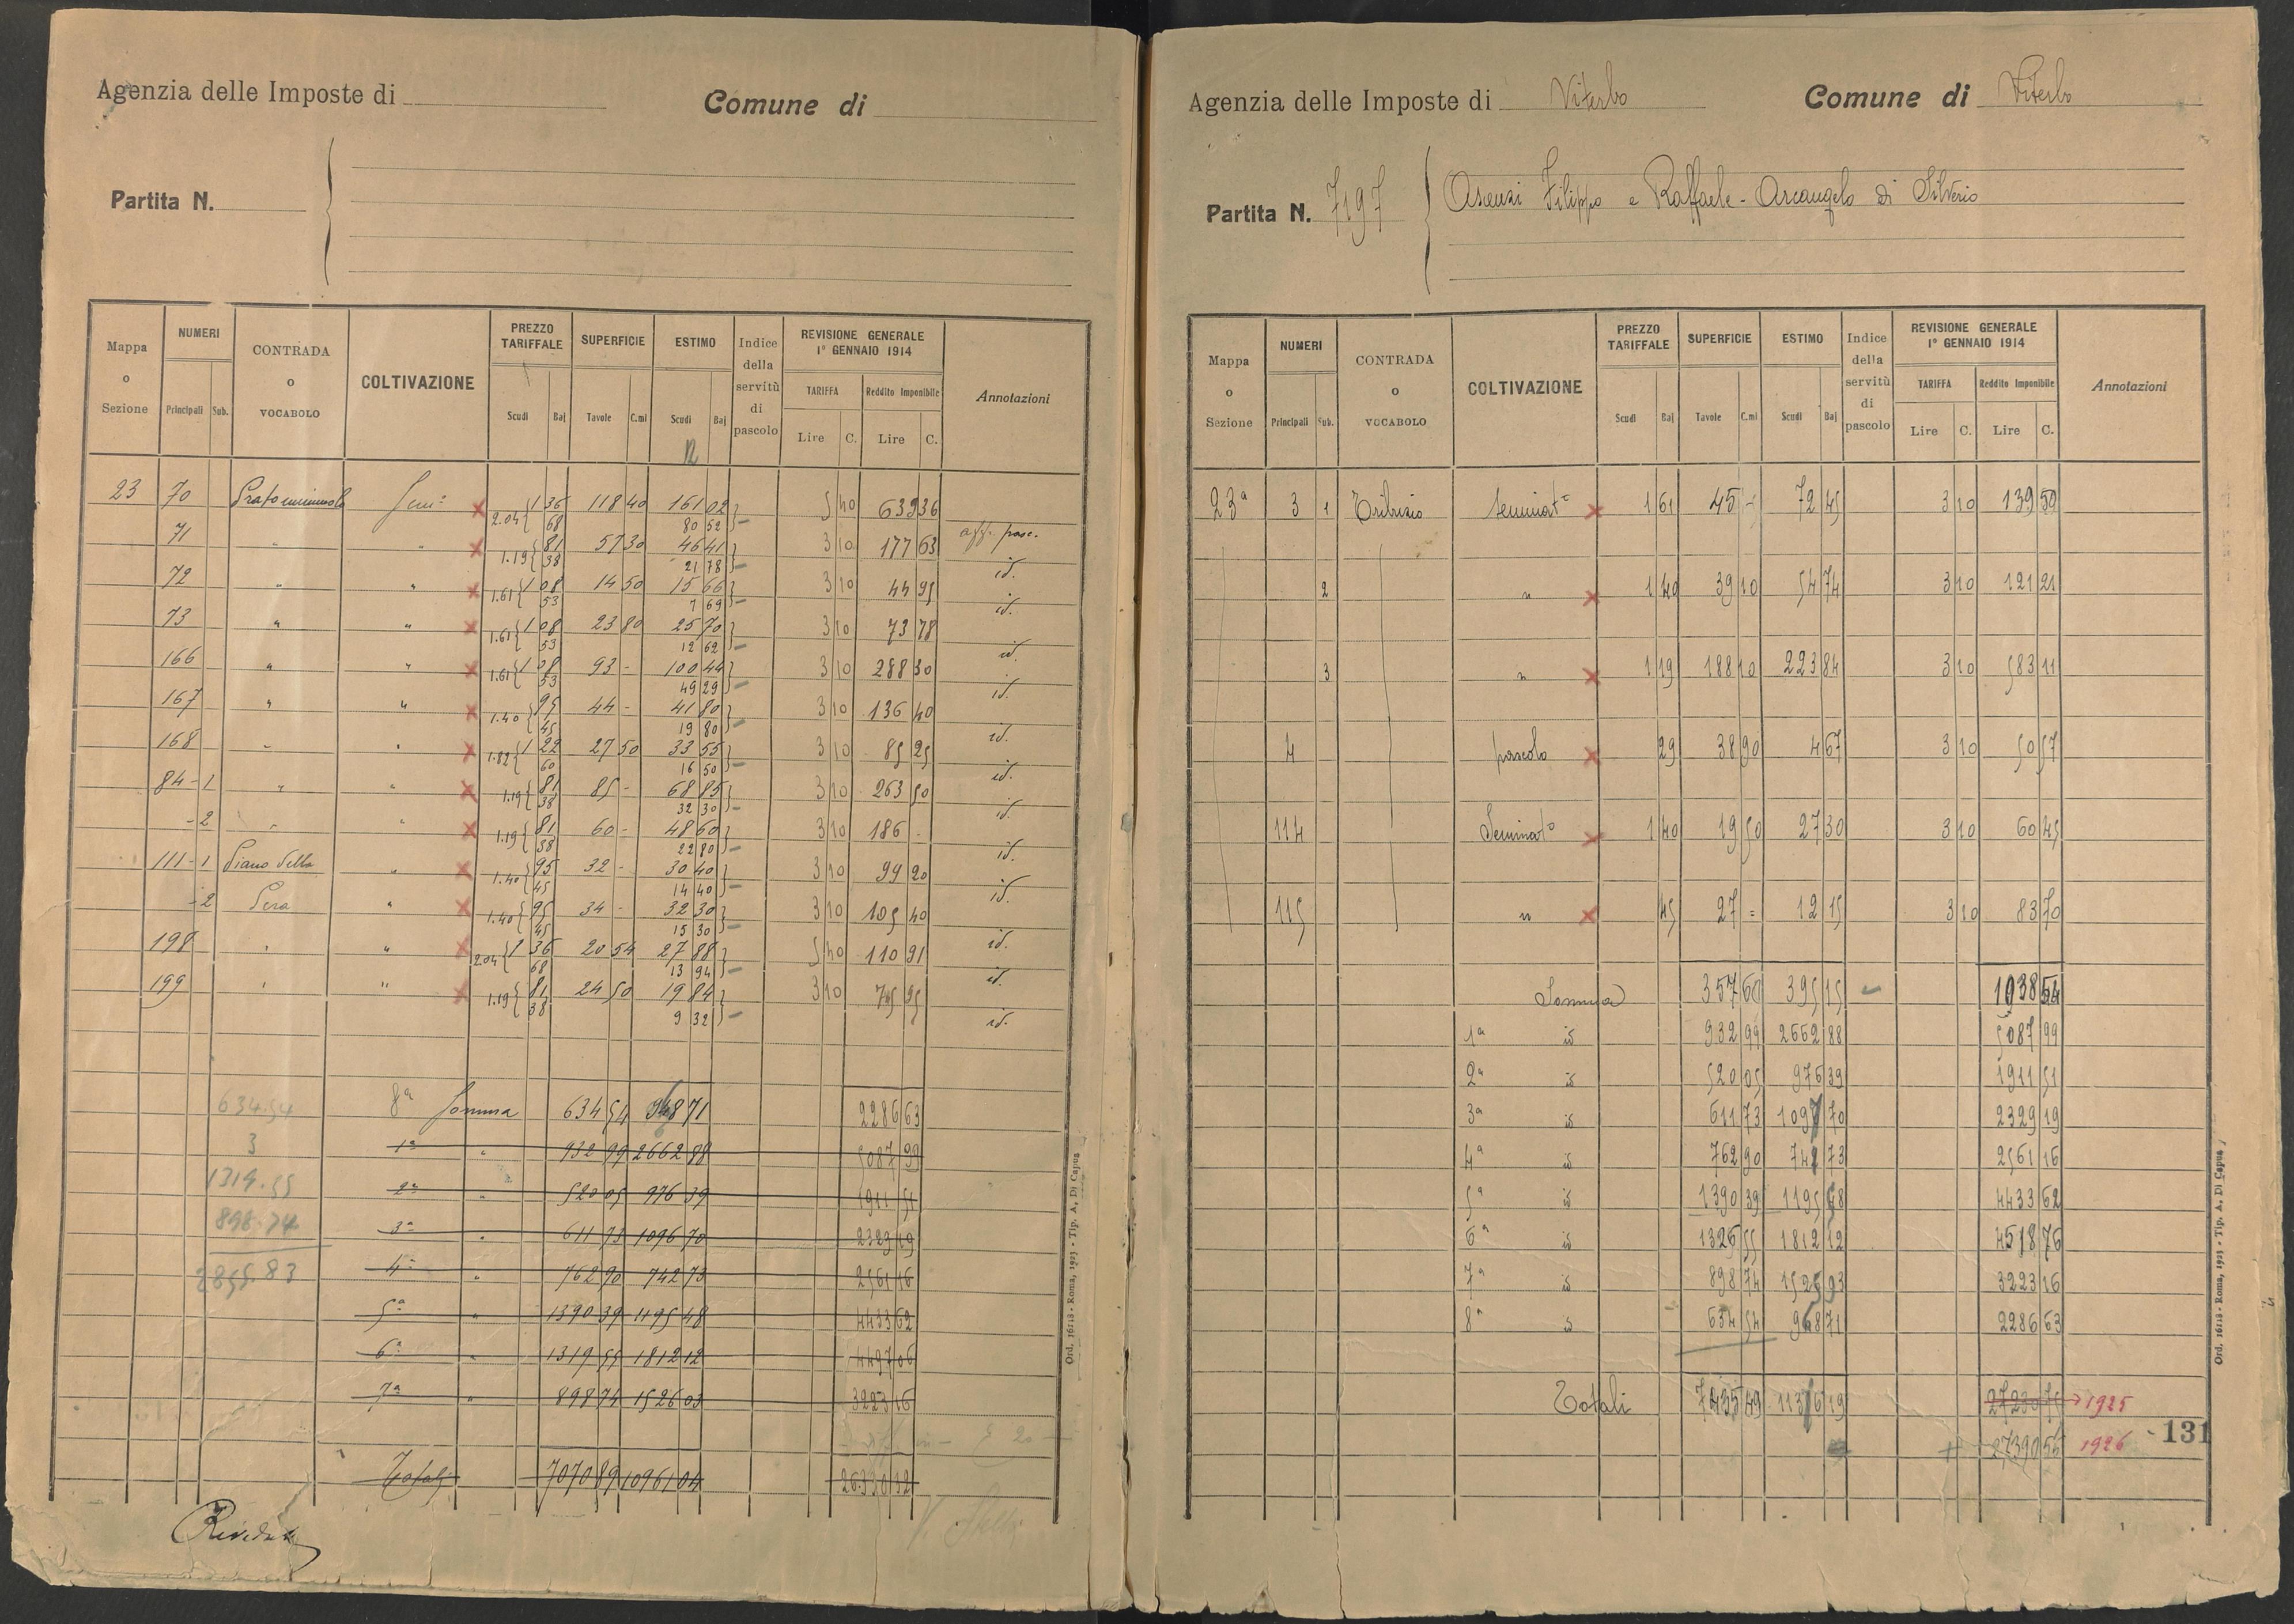 Agenzia delle Imposte di
Comune di
Partita N.
Mappa o Sezione | NUMERI Principali Sub. | CONTRADA o VOCABOLO | COLTIVAZIONE | PREZZO TARIFFALE Scudi Baj | SUPERFICIE Tavole C.mi | ESTIMO Scudi Baj | Indice della servitù di pascolo | REVISIONE GENERALE 1° GENNAIO 1914 TARIFFA Lire C. Reddito Imponibile Lire C. | Annotazioni
23 70 Sem° 2.04 { 1 36 118 40 161 02 5 40 639 36
68 80 52 aff. pasc.
71 " " 1.19 { 81 57 30 46 41 3 10 177 63
38 21 78 id.
72 " " 1.61 { 1 08 14 50 15 66 3 10 44 95
53 7 69 id.
73 " " 1.61 { 1 08 23 80 25 70 3 10 73 78
53 12 62 id.
166 " " 1.61 { 1 08 93 - 100 44 3 10 288 30
53 49 29 id.
167 " " 1.40 { 95 44 - 41 80 3 10 136 40
45 19 80 id.
168 " " 1.82 { 1 22 27 50 33 55 3 10 85 25
60 16 50 id.
84 - 1 " " 1.19 { 81 85 - 68 85 3 10 263 50
38 32 30 id.
- 2 " " 1.19 { 81 60 - 48 60 3 10 186 -
38 22 80 id.
111 - 1 Piano della " 1.40 { 95 32 - 30 40 3 10 99 20
45 14 40 id.
- 2 Pera " 1.40 { 95 34 - 32 30 3 10 105 40
45 15 30 id.
198 " " 2.04 { 1 36 20 54 27 88 5 40 110 91
68 13 94 id.
199 " " 1.19 { 81 24 50 19 84 3 10 75 95
38 9 32 id.
634.54 8ª Somma 634 54 968 71 2286 63
3 1ª " 932 99 2662 88 5087 99
1319.55 2ª " 520 05 976 39 1911 51
898.74 3ª " 611 73 1096 70 2323 19
2855.83 4ª " 762 90 742 73 2561 16
5ª " 1390 39 1195 48 4433 62
6ª " 1319 55 1812 12 4497 06
7ª " 898 74 1526 03 3223 16
Totali 7070 89 10961 04 26330 32
Ord. 16118 - Roma, 1923 - Tip. A. Di Capua
Agenzia delle Imposte di Viterbo
Comune di Viterbo
Partita N. 7197 { Ascenzi Filippo e Raffaele - Arcangelo di Silverio
Mappa o Sezione | NUMERI Principali Sub. | CONTRADA o VOCABOLO | COLTIVAZIONE | PREZZO TARIFFALE Scudi Baj | SUPERFICIE Tavole C.mi | ESTIMO Scudi Baj | Indice della servitù di pascolo | REVISIONE GENERALE 1° GENNAIO 1914 TARIFFA Lire C. Reddito Imponibile Lire C. | Annotazioni
23ª 3 1 seminatº 1 61 45 - 72 45 3 10 139 50
2 " 1 40 39 10 54 74 3 10 121 21
3 " 1 19 188 10 223 84 3 10 583 11
4 pascolo 29 38 90 4 67 3 10 50 57
114 Seminatº 1 40 19 50 27 30 3 10 60 45
115 " 45 27 = 12 15 3 10 83 70
Somma 357 60 395 15 1038 54
1ª id 932 99 2662 88 5087 99
2ª id 520 05 976 39 1911 51
3ª id 611 73 1097 70 2329 19
4ª id 762 90 742 73 2561 16
5ª id 1390 39 1195 48 4433 62
6ª id 1326 55 1812 12 4518 76
7ª id 898 74 1526 03 3223 16
8ª id 634 54 968 71 2286 63
Totali 7435 49 11376 19 27230 75 → 1925
27390 55 1926
131
Ord. 16118 - Roma, 1923 - Tip. A. Di Capua